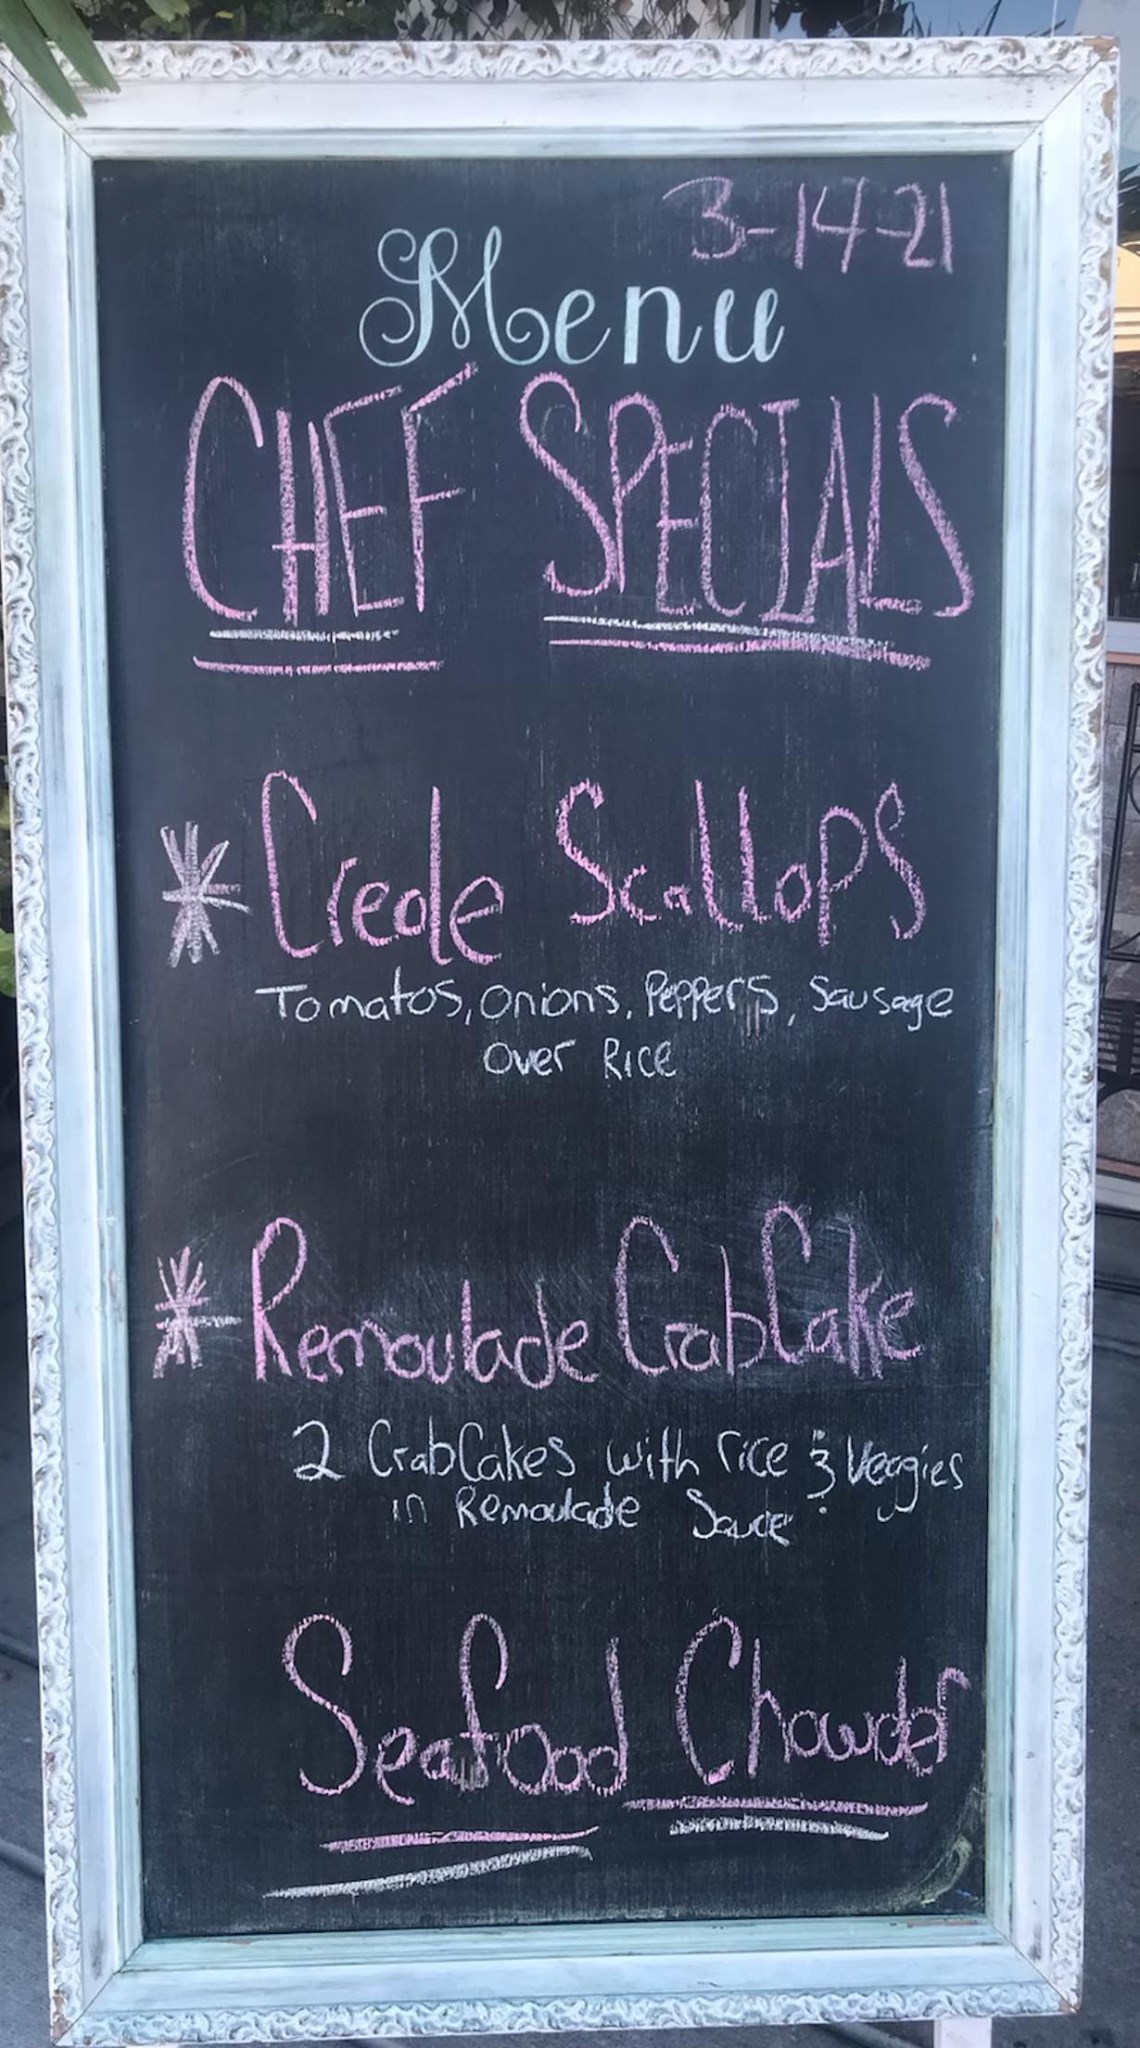 3-14-21
Menu
CHEF SPECIALS
* Creole Scallops
Tomatos, onions, Peppers, Sausage
over RICE
* Remoulade CrabCake
2 CrabCakes with rice & Veggies
in Remoulade Sauce
Seafood Chowder